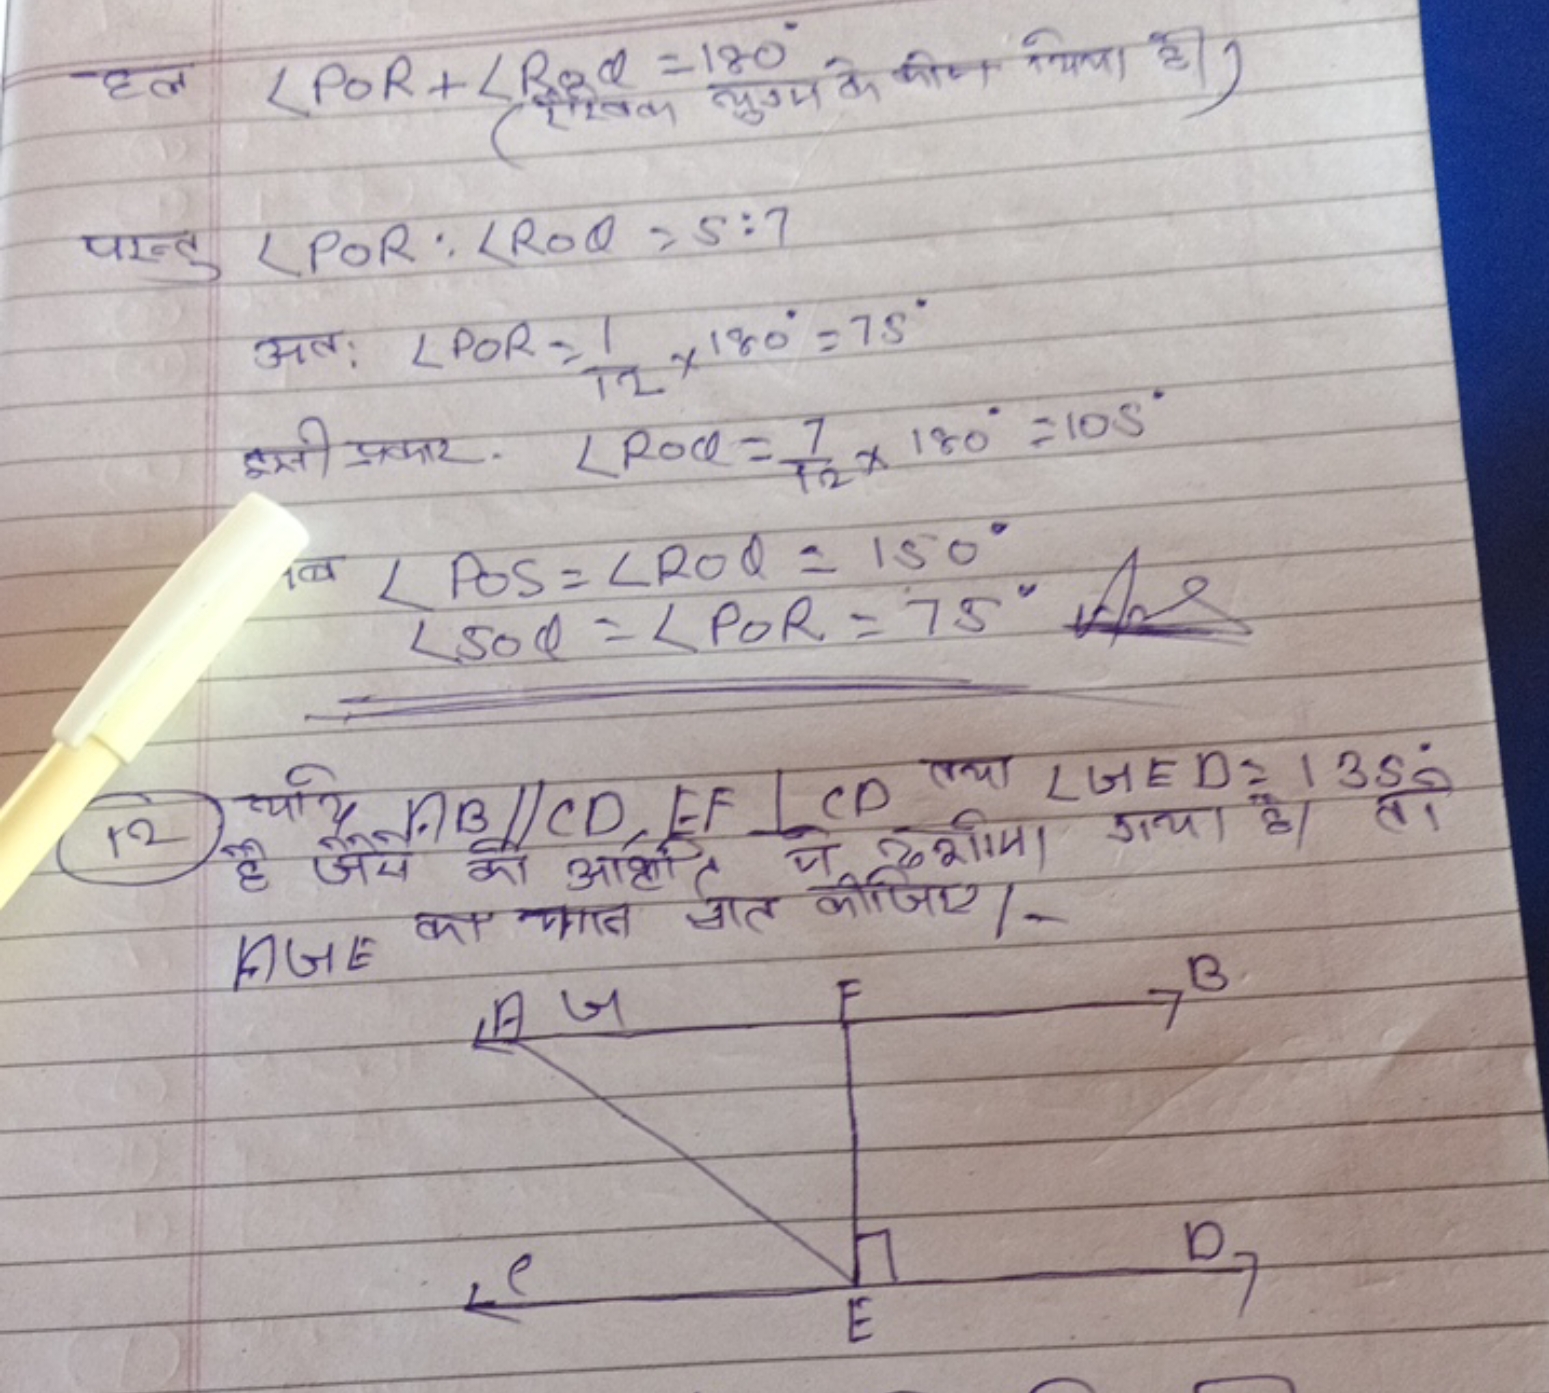 हल ∠POR + ∠ROQ = 180°
(रैखिक युग्म के कोण है।)
परन्तु ∠POR : ∠ROQ = 5:7
अतः ∠POR = 1/12 × 180° = 75°
इसी प्रकार. ∠ROQ = 7/12 × 180° = 105°
∠POS = ∠ROQ = 150°
∠SOQ = ∠POR = 75° Ans
12 यदि AB//CD, EF ⊥ CD तथा ∠GED = 135°
है जैसे की आकृति में दर्शाया गया है। तो
AGE का मान ज्ञात कीजिए।-
A G F B
C E D